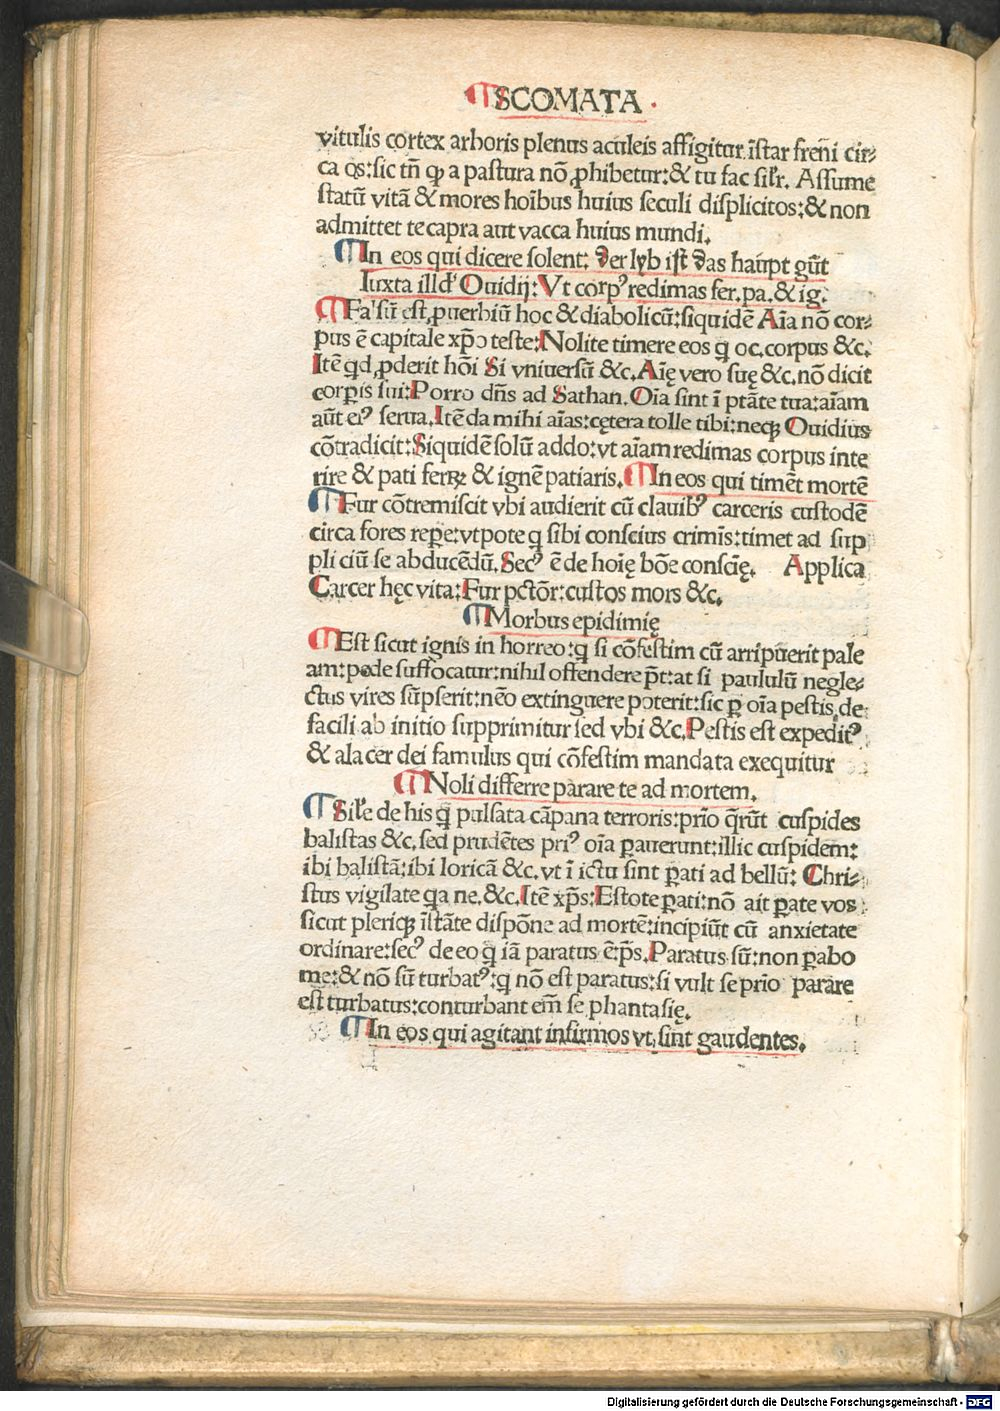 ¶SCOMATA.
vitulis cortex arboris plenus aculeis affigitur īstar freñi cir⸗
ca os: sic tñ ꝙ a pastura nō ꝓhibetur: & tu fac silr. Assume
statū vitā & mores hoībus huius seculi displicitos: & non
admittet te capra aut vacca huius mundi.
¶In eos qui dicere solent: Der lyb ist das haupt gůt
Iuxta illd' Ouidij: Vt corpꝰ redimas fer. pa. & ig.
¶Fa'sū est ꝓuerbiū hoc & diabolicū: siquidē Aīa nō cor⸗
pus ē capitale xp̄o teste: Nolite timere eos q̄ oc. corpus &c.
Itē qd ꝓderit hōi Si vniuersū &c. Aīę vero suę &c. nō dicit
corꝑis sui: Porro dn̄s ad Sathan. Oīa sint ī ptāte tua: aīam
aūt eiꝰ serua. Itē da mihi aīas: cętera tolle tibi: neqꝫ Ouidius
cōtradicit: Siquidē solū addo: vt aīam redimas corpus inte
rire & pati ferꝝ & ignē patiaris. ¶In eos qui timēt mortē
¶Fur cōtremiscit vbi audierit cū clauibꝰ carceris custodē
circa fores repe: vtpote q sibi conscius crimīs: timet ad sup
pliciū se abducēdū. Secꝰ ē de hoīe bōe consciē. Applica
Carcer hęc vita: Fur pctōr: custos mors &c.
¶Morbus epidimię
¶Est sicut ignis in horreo: q si cōfestim cū arripuerit pale
am: pede suffocatur: nihil offendere pt̄: at si paululū negle⸗
ctus vires sūpserit: nēo extinguere poterit: sic ꝑ oīa pestis de
facili ab initio supprimitur sed vbi &c. Pestis est expeditꝰ
& alacer dei famulus qui cōfestim mandata exequitur
¶Noli differre parare te ad mortem.
¶Sile de his q̄ pulsata cāpana terroris: prīo q̄rūt cuspides
balistas &c. sed prudētes priꝰ oīa ꝑauerunt: illic cuspidem:
ibi balistā: ibi loricā &c. vt ī ictu sint ꝑati ad bellū: Chri⸗
stus vigilate qa ne. &c. Itē xp̄s: Estote ꝑati: nō ait ꝑate vos
sicut pleriqꝫ īstāte dispōne ad mortē: incipiūt cū anxietate
ordinare: secꝰ de eo q̄ iā paratus ē: ps̄. Paratus sū: non ꝑabo
me: & nō sū turbatꝰ: q nō est paratus: si vult se prīo parare
est turbatus: conturbant em̄ se phantasię.
¶In eos qui agitant infirmos vt sint gaudentes.
Digitalisierung gefördert durch die Deutsche Forschungsgemeinschaft - DFG